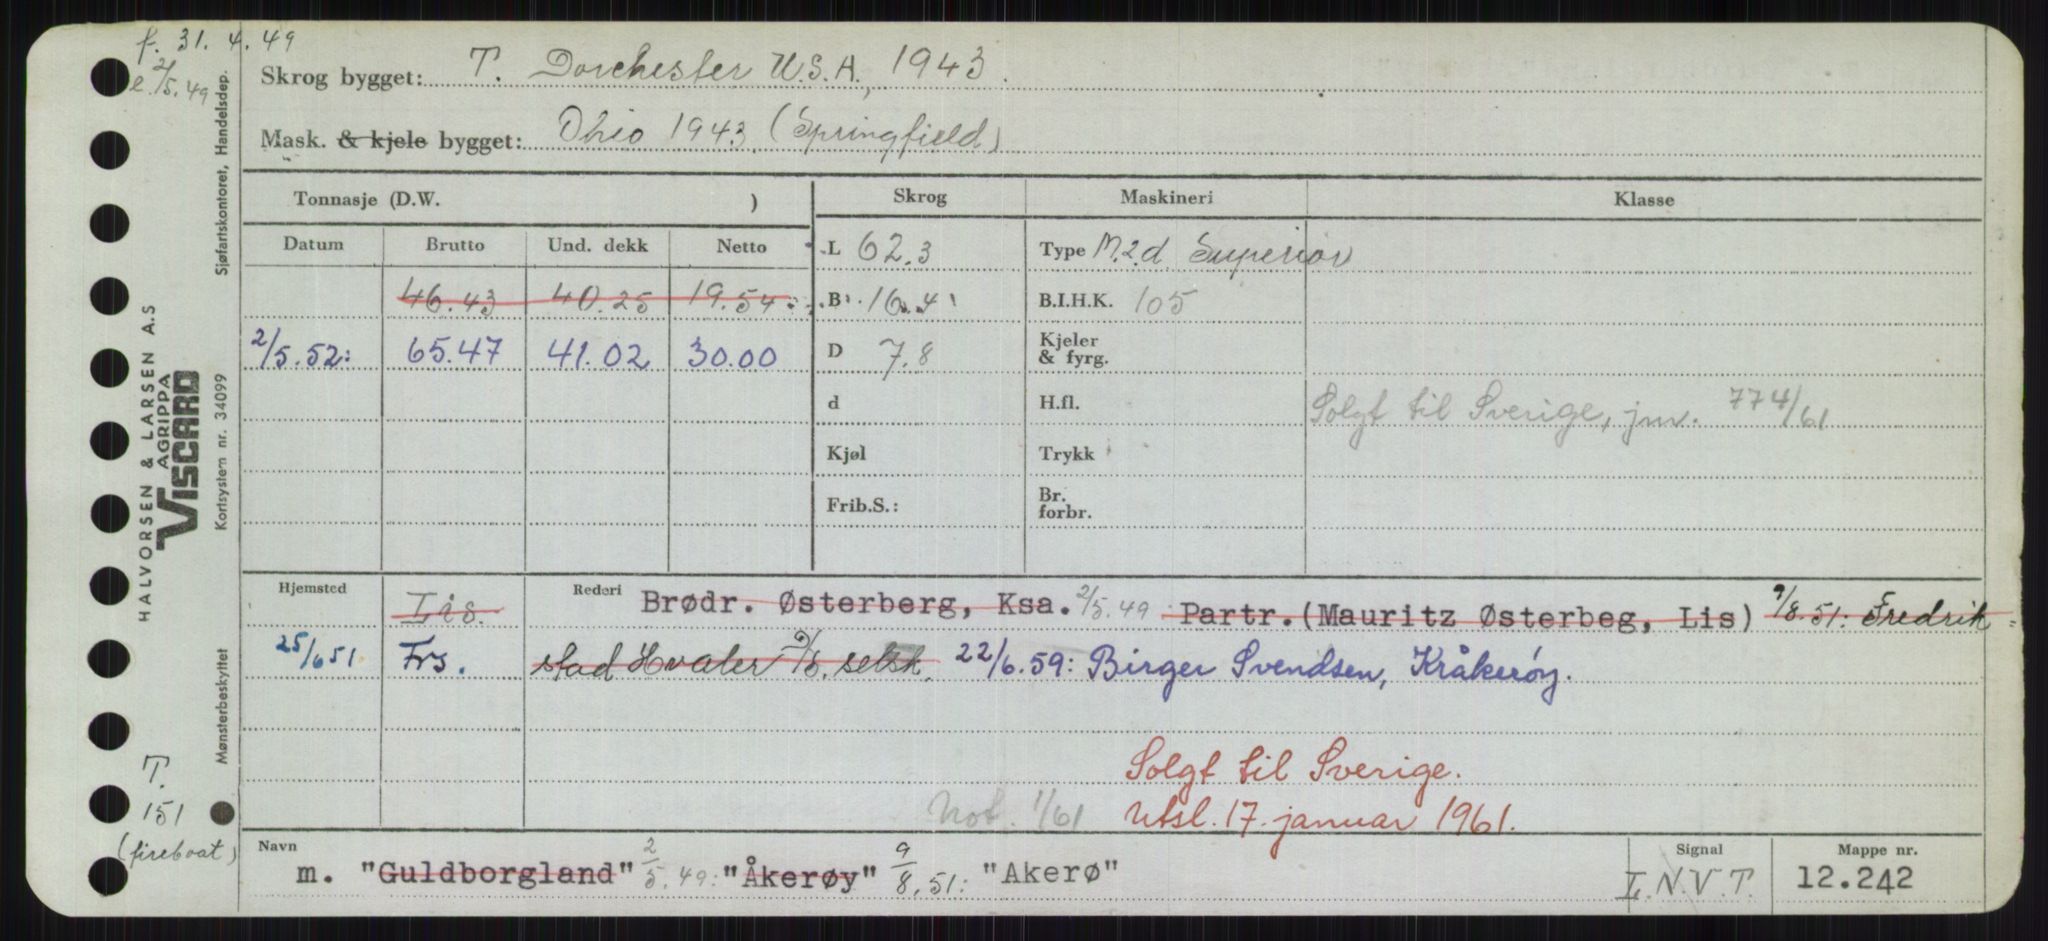 f. 31. 4. 49
e. 2/5. 49
Skrog bygget: T. Dorchester U.S.A, 1943.
Mask. & kjele bygget: Ohio 1943 (Springfield)
Tonnasje (D.W. )
Skrog
Maskineri
Klasse
Datum
Brutto
Und. dekk
Netto
L 62.3
Type M.2.d Superior
46.43 40.25 19.54
B 16.4
B.I.H.K. 105
2/5.52: 65.47 41.02 30.00
D 7.8
Kjeler
& fyrg.
d
H.fl.
Solgt til Sverige, jnr. 774/61
Kjøl
Trykk
Frib.S.:
Br.
forbr.
Hjemsted
Lis.
Rederi
Brødr. Østerberg, Ksa. 2/5.49 Partr. (Mauritz Østerbeg, Lis) 9/8.51: Fredrik=
25/651 Frs.
stad Hvaler D/S. selsk. 22/6.59: Birger Svendsen, Kråkerøy.
Solgt til Sverige.
Not. 1/61 Utsl. 17. januar 1961.
Navn
m. "Guldborgland" 2/5.49: "Åkerøy" 9/8.51: "Akerø"
Signal
L.N.V.T.
Mappe nr.
12.242
Sjøfartskontoret, Handelsdep.
HALVORSEN & LARSEN A.S
AGRIPPA
VISCARD
Kortsystem nr. 34099
Mønsterbeskyttet
T.
151
(fireboat)